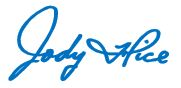 Jody Hice